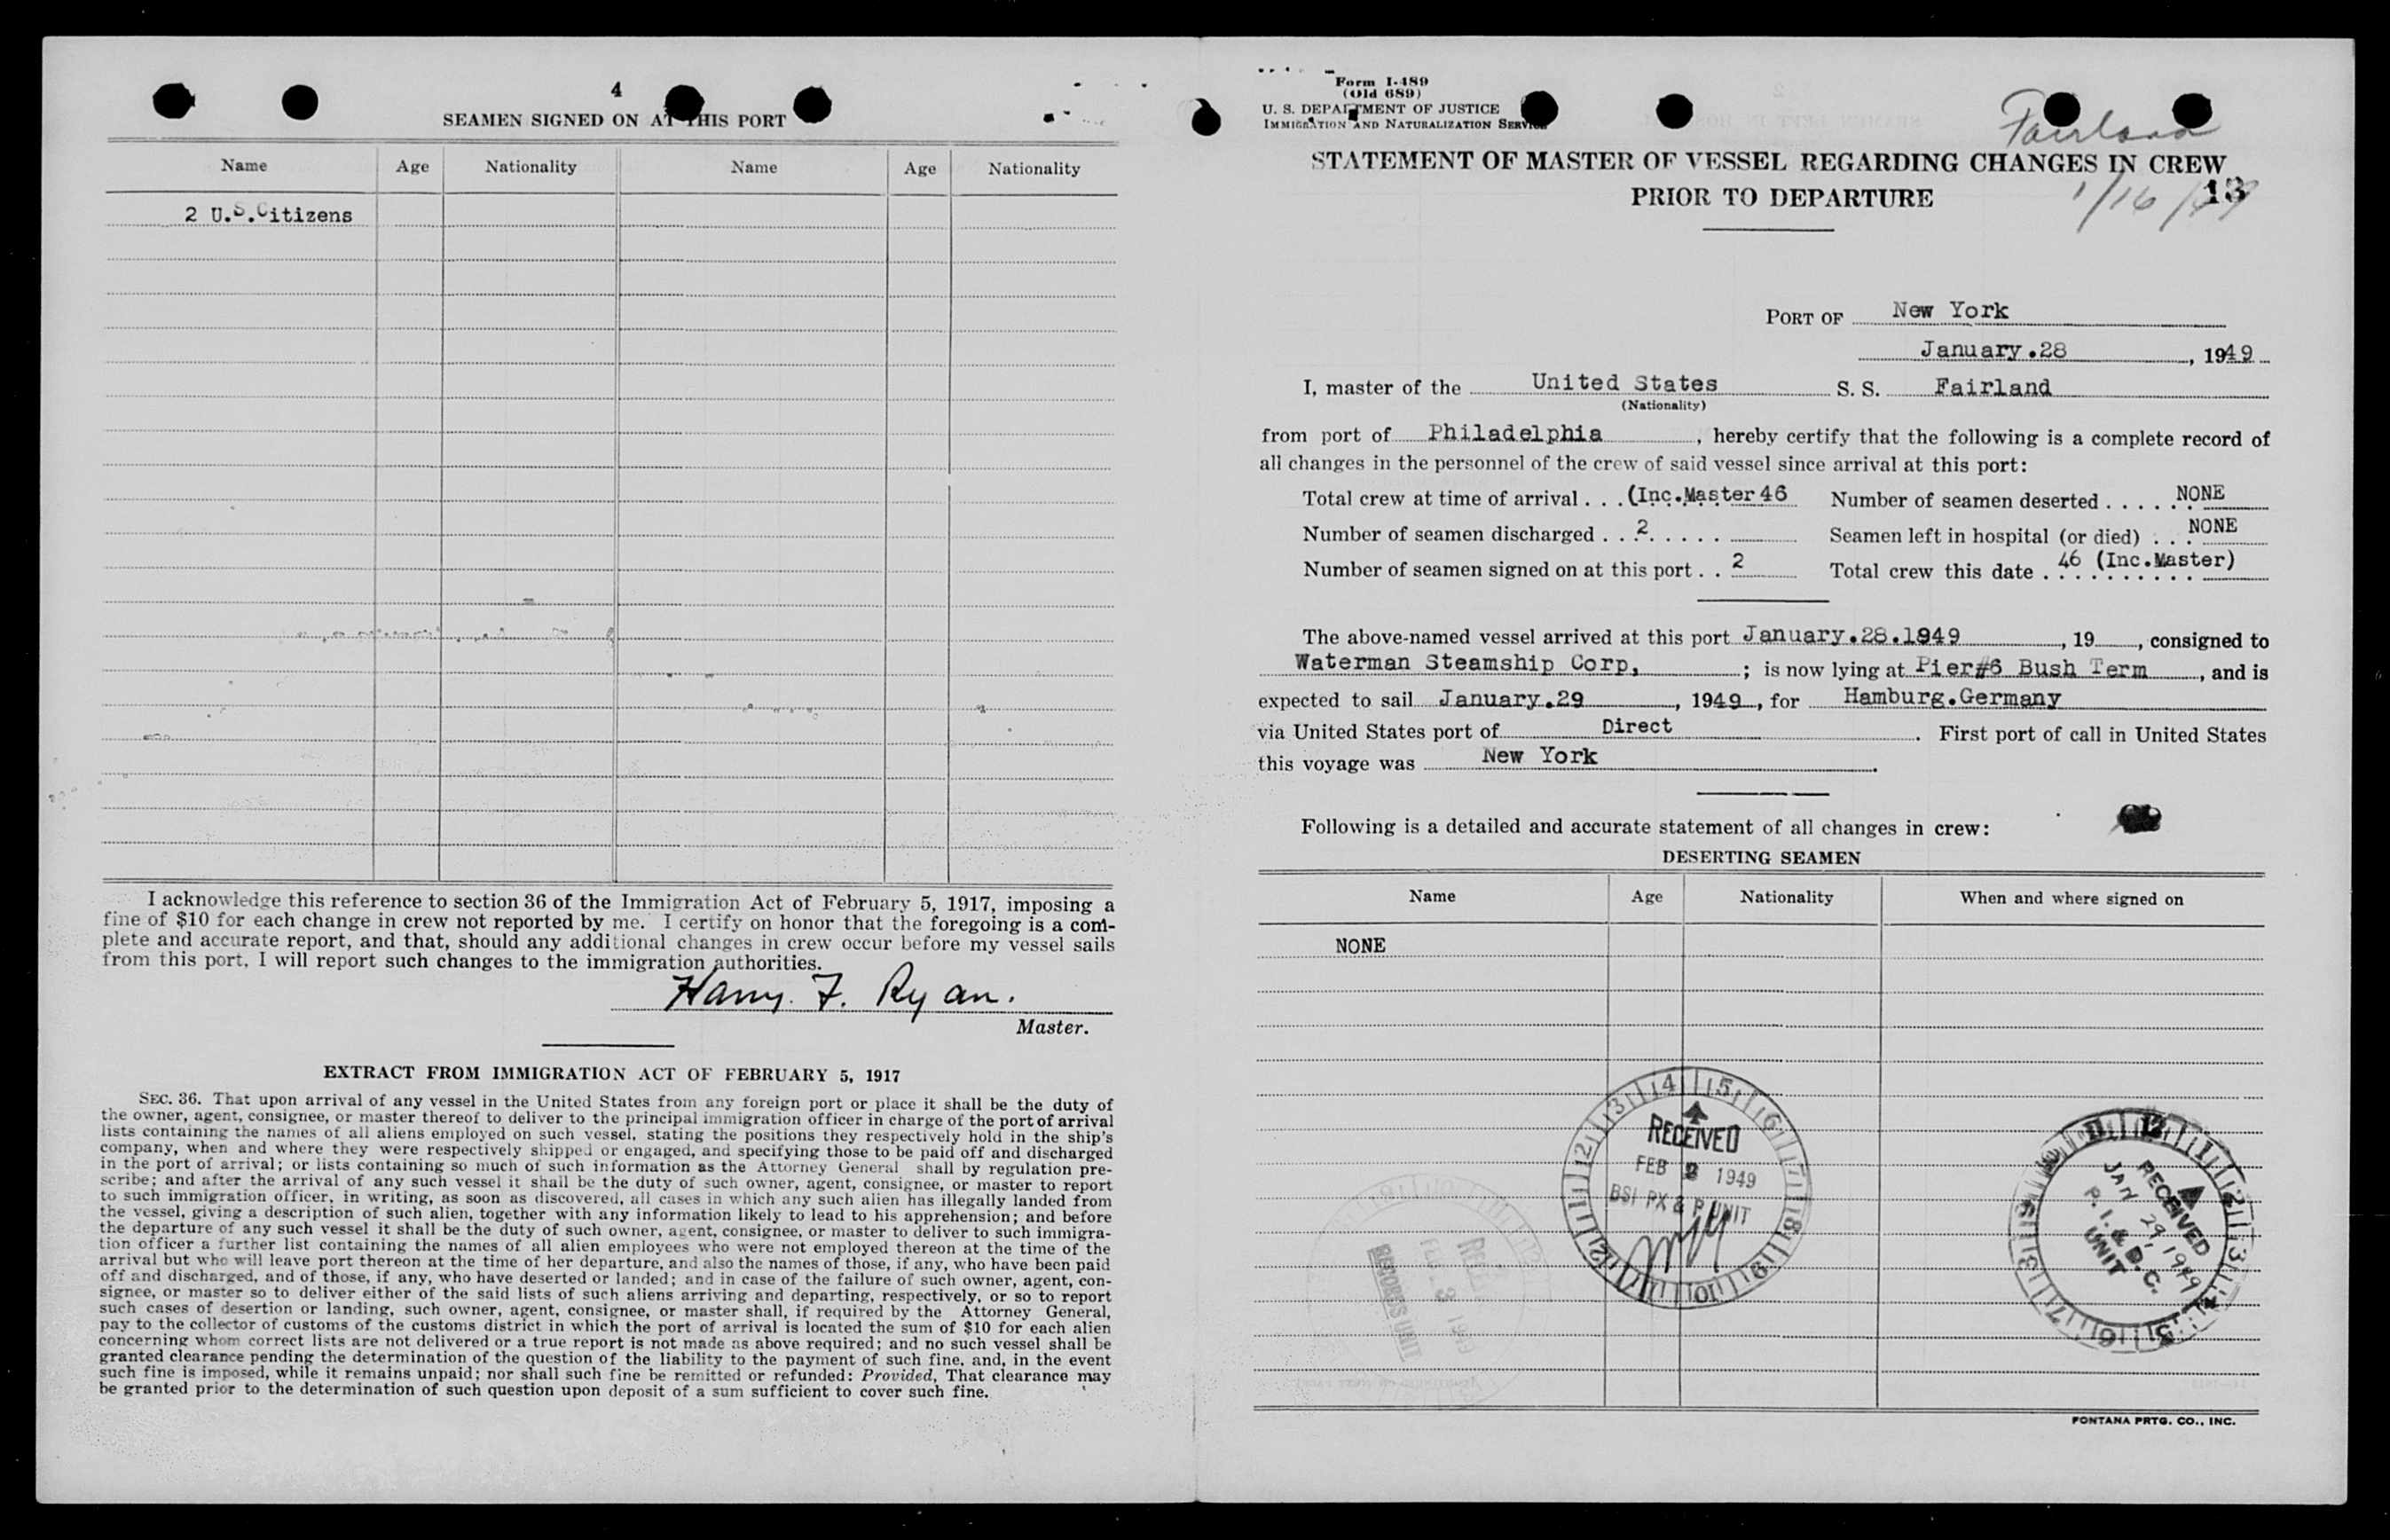 4
SEAMEN SIGNED ON AT THIS PORT
Name Age Nationality Name Age Nationality
2 U.S.Citizens
I acknowledge this reference to section 36 of the Immigration Act of February 5, 1917, imposing a
fine of $10 for each change in crew not reported by me. I certify on honor that the foregoing is a com-
plete and accurate report, and that, should any additional changes in crew occur before my vessel sails
from this port, I will report such changes to the immigration authorities.
Harry F. Ryan.
Master.
EXTRACT FROM IMMIGRATION ACT OF FEBRUARY 5, 1917
SEC. 36. That upon arrival of any vessel in the United States from any foreign port or place it shall be the duty of
the owner, agent, consignee, or master thereof to deliver to the principal immigration officer in charge of the port of arrival
lists containing the names of all aliens employed on such vessel, stating the positions they respectively hold in the ship's
company, when and where they were respectively shipped or engaged, and specifying those to be paid off and discharged
in the port of arrival; or lists containing so much of such information as the Attorney General shall by regulation pre-
scribe; and after the arrival of any such vessel it shall be the duty of such owner, agent, consignee, or master to report
to such immigration officer, in writing, as soon as discovered, all cases in which any such alien has illegally landed from
the vessel, giving a description of such alien, together with any information likely to lead to his apprehension; and before
the departure of any such vessel it shall be the duty of such owner, agent, consignee, or master to deliver to such immigra-
tion officer a further list containing the names of all alien employees who were not employed thereon at the time of the
arrival but who will leave port thereon at the time of her departure, and also the names of those, if any, who have been paid
off and discharged, and of those, if any, who have deserted or landed; and in case of the failure of such owner, agent, con-
signee, or master so to deliver either of the said lists of such aliens arriving and departing, respectively, or so to report
such cases of desertion or landing, such owner, agent, consignee, or master shall, if required by the Attorney General,
pay to the collector of customs of the customs district in which the port of arrival is located the sum of $10 for each alien
concerning whom correct lists are not delivered or a true report is not made as above required; and no such vessel shall be
granted clearance pending the determination of the question of the liability to the payment of such fine, and, in the event
such fine is imposed, while it remains unpaid; nor shall such fine be remitted or refunded: Provided, That clearance may
be granted prior to the determination of such question upon deposit of a sum sufficient to cover such fine.
Form I-489
(Old 689)
U. S. DEPARTMENT OF JUSTICE
IMMIGRATION AND NATURALIZATION SERVICE
Fairland
STATEMENT OF MASTER OF VESSEL REGARDING CHANGES IN CREW
PRIOR TO DEPARTURE
13
1/16/49
PORT OF New York
January.28, 1949
I, master of the United States S. S. Fairland
(Nationality)
from port of Philadelphia, hereby certify that the following is a complete record of
all changes in the personnel of the crew of said vessel since arrival at this port:
Total crew at time of arrival . . . (Inc.Master 46 Number of seamen deserted . . . . . . NONE
Number of seamen discharged . . 2 . . . . . Seamen left in hospital (or died) . . . NONE
Number of seamen signed on at this port . . 2 Total crew this date . 46 (Inc.Master)
The above-named vessel arrived at this port January.28.1949, 19 , consigned to
Waterman Steamship Corp, ; is now lying at Pier#6 Bush Term, and is
expected to sail January.29, 1949, for Hamburg.Germany
via United States port of Direct. First port of call in United States
this voyage was New York.
Following is a detailed and accurate statement of all changes in crew:
DESERTING SEAMEN
Name Age Nationality When and where signed on
NONE
RECEIVED
FEB 2 1949
BSI PX & P UNIT
RECEIVED
JAN 29, 1949
P. I. & D. C.
UNIT
RECORDS UNIT
FONTANA PRTG. CO., INC.